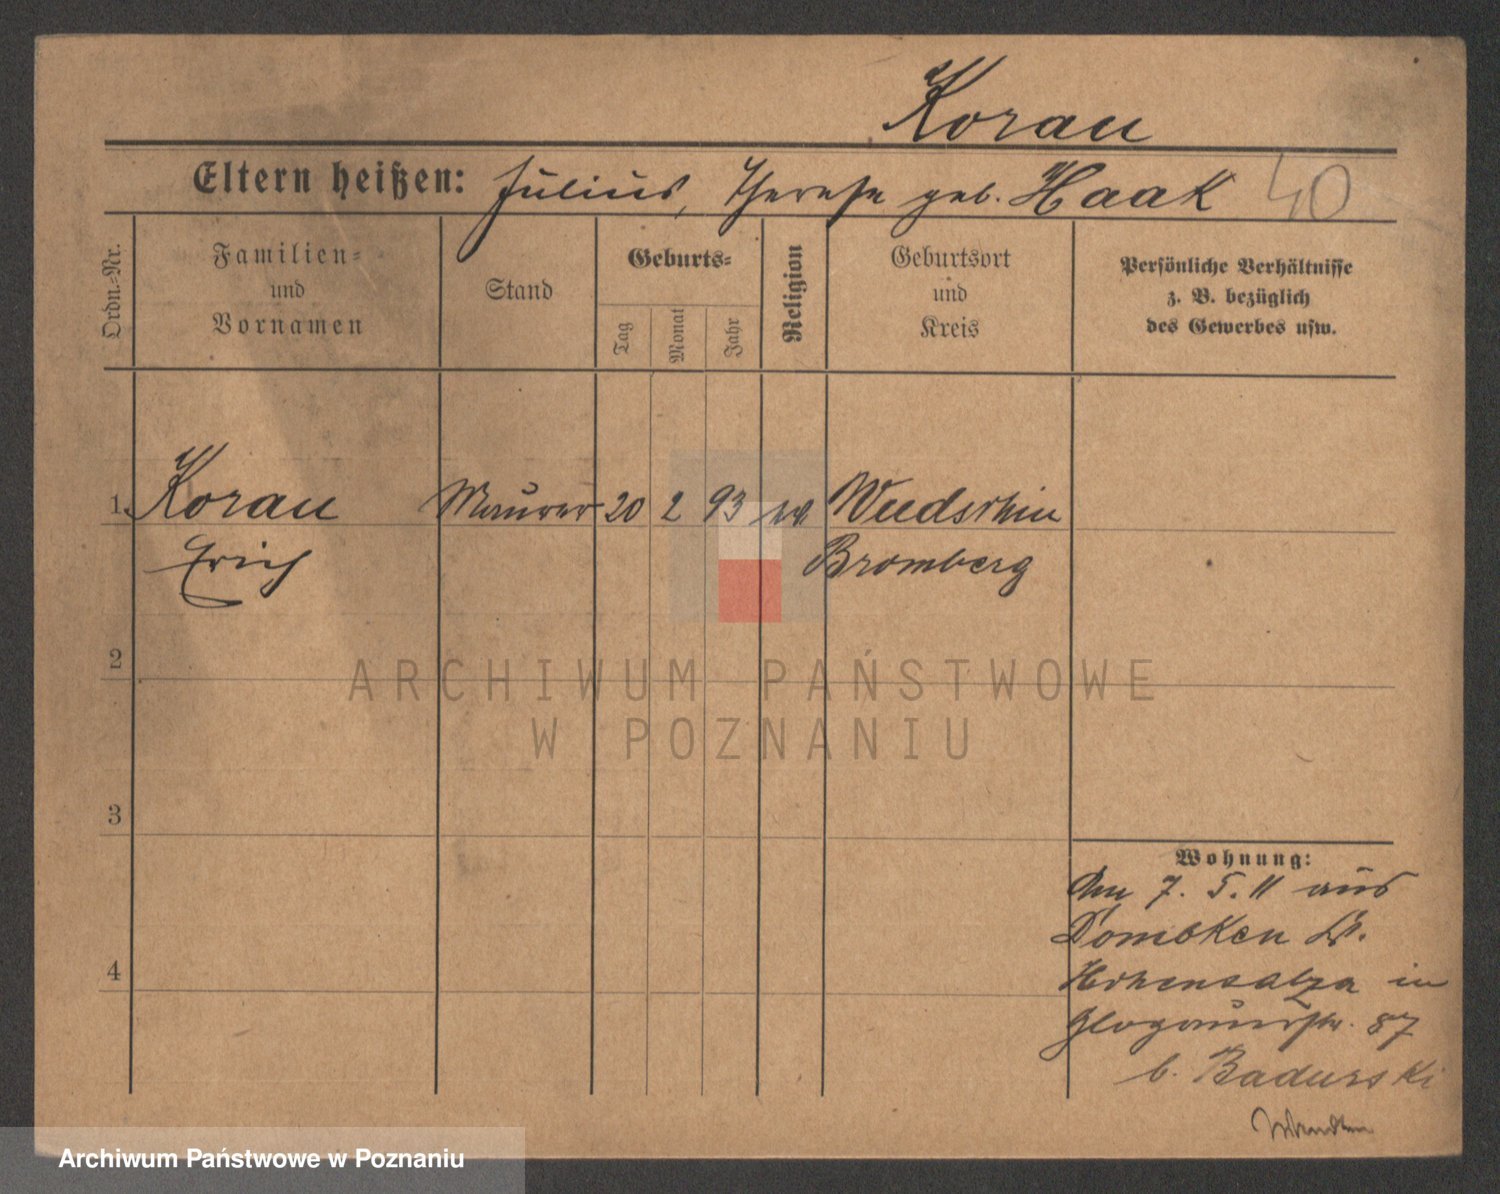 Korau
Eltern heißen: Julius, Therese geb. Haak 40
Ordn.-Nr.
Familien-
und
Vornamen
Stand
Geburts-
Tag
Monat
Jahr
Religion
Geburtsort
und
Kreis
Persönliche Verhältnisse
z. B. bezüglich
des Gewerbes usw.
1. Korau Maurer 20 2 93 ev
Erich Bromberg
2
ARCHIWUM PAŃSTWOWE
W POZNANIU
3
Wohnung:
Am 7. 5. 11 aus
Dombken Kr.
4
Hohensalza in
Glogauerstr. 87
b. Badurski
Archiwum Państwowe w Poznaniu